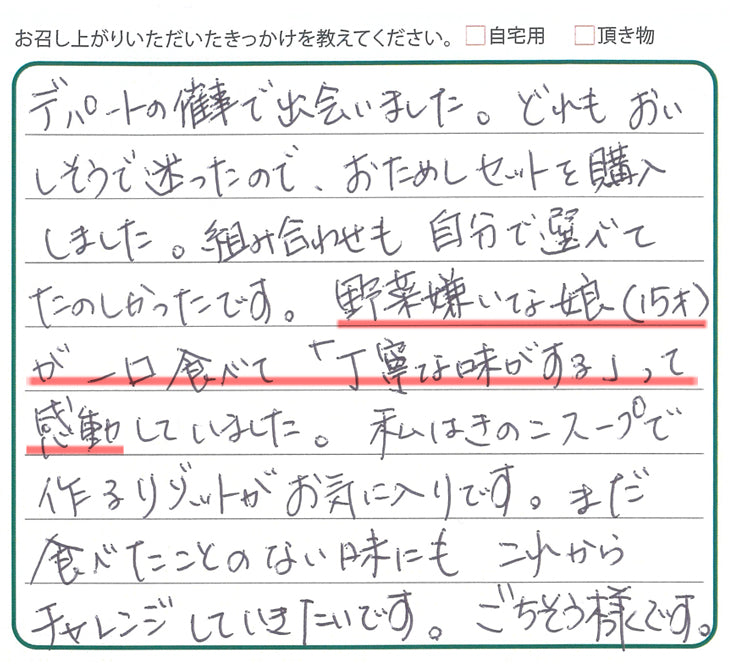 お召し上がりいただいたきっかけを教えてください。 □自宅用 □頂き物
デパートの催事で出会いました。どれも おい
しそうで迷ったので、おためしセットを購入
しました。組み合わせも 自分で選べて
たのしかったです。 野菜嫌いな娘(15才)
が 一口 食べて 「丁寧な味がする」って
感動していました。 私はきのこスープで
作るリゾットがお気に入りです。まだ
食べたことのない味にも これから
チャレンジしていきたいです。ごちそう様です。